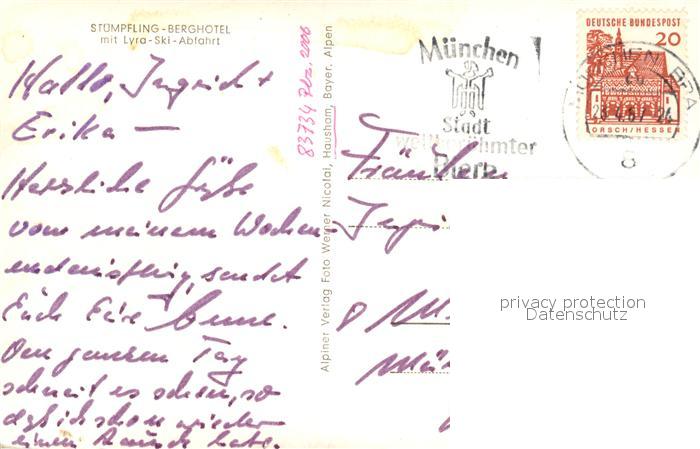 STÜMPFLING-BERGHOTEL
mit Lyra-Ski-Abfahrt
Hallo, Ingrid +
Erika —
Herzliche Grüße
vom meinem Wochen-
endausflug, sendet
Euch Eure
Den ganzen Tag
schneit es schon, so
daß ich schon wieder
einen habe.
83734 Plz. 2006
Alpiner Verlag Foto Werner Nicolai, Hausham, Bayer. Alpen
München
Stadt
weltberühmter
Biere
DEUTSCHE BUNDESPOST
20
LORSCH/HESSEN
MÜNCHEN
8
Fräulein
privacy protection
Datenschutz